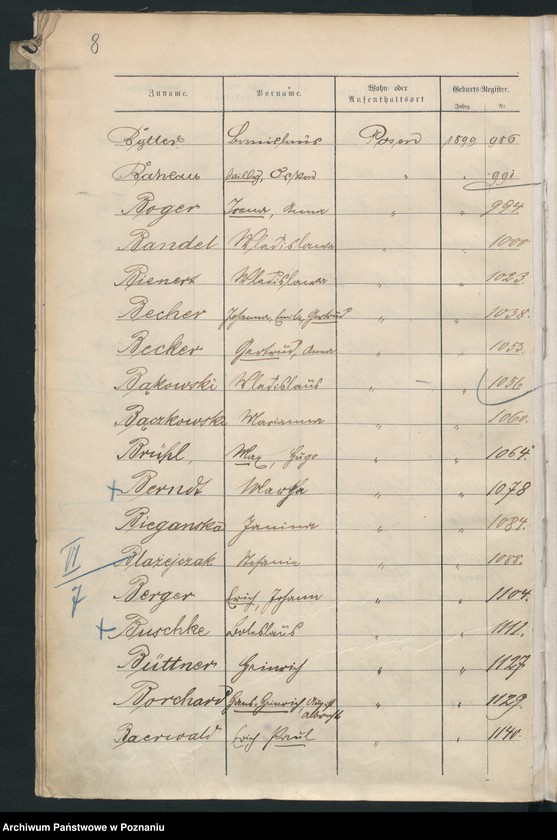 8
Zuname. Vorname. Wohn- oder Aufenthaltsort Geburts-Register.
Jahrg. Nr.
Bronislaus Posen 1899 986
Willy, Oskar " " 991
Boger Irena, Anna " " 994.
Bandel Wladislawa " " 1000
Bienert Wladislawa " " 1023
Becher Johanna, Emilie, Gertrud " " 1038.
Becker Gertrud, Anna " " 1053.
Bąkowski Wladislaus " " 1056
Bączkowska Marianna " " 1060.
Brühl, Max, Hugo " " 1064.
+ Berndt Martha " " 1078
Bieganska Janina " " 1084.
III Blażejczak Stefanie " " 1088.
7 Berger Erich, Johann " " 1104.
+ Buschke Boleslaus " " 1111.
Büttner Heinrich " " 1127
Borchard Hans, Heinrich, August Albrecht " " 1129.
Baerwald Erich Paul " " 1140.
Archiwum Państwowe w Poznaniu